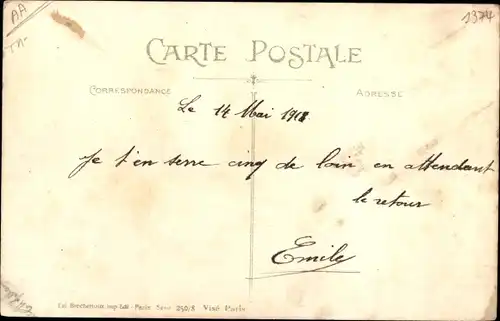 AA
1374
CARTE POSTALE
CORRESPONDANCE
ADRESSE
Le 14 Mai 1918
Je t'en serre cinq de loin en attendant
le retour
Emile
Paris Série 250/8 Visé Paris